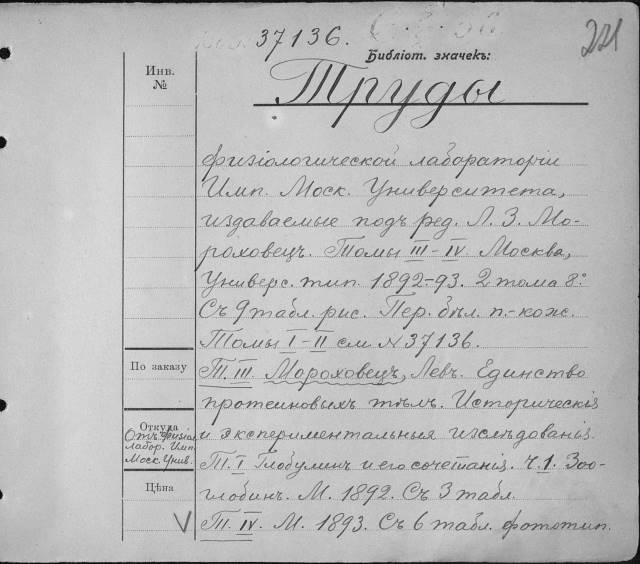 37136.
221
Библіот. значекъ:
Инв.
№
Труды
физіологической лабораторіи
Имп. Моск. Университета,
издаваемые подъ ред. Л. З. Мо-
роховецъ. Томы III-IV. Москва,
Универс. тип. 1892-93. 2 тома 8°.
Съ 9 табл. рис. Пер. бѣл. п.-кож.
Томы I-II см. N 37136.
По заказу
Т. III. Мороховецъ, Левъ. Единство
протеиновыхъ тѣлъ. Историческія
Откуда
Отъ Физіол.
лабор. Имп.
Моск. Унив.
и экспериментальныя изслѣдованія.
Т. I Глобулинъ и его сочетанія. Ч. 1. Зоо-
Цѣна
глобинъ. М. 1892. Съ 3 табл.
V Т. IV. М. 1893. Съ 6 табл. фототип.